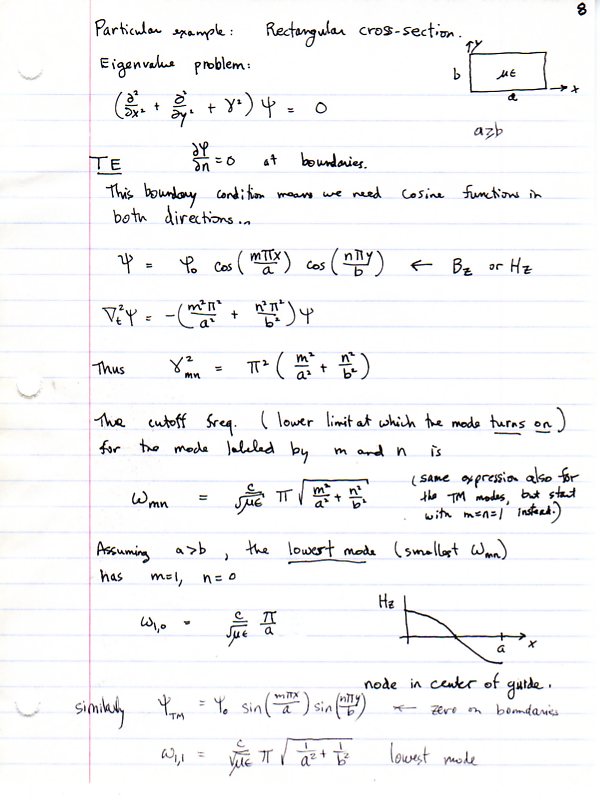 8
Particular example: Rectangular cross-section.
y
b με
a x
a≥b
Eigenvalue problem:
(∂²/∂x² + ∂²/∂y² + γ²) ψ = 0
TE ∂ψ/∂n = 0 at boundaries.
This boundary condition means we need cosine functions in
both directions...
ψ = ψ₀ cos(mπx/a) cos(nπy/b) ← Bz or Hz
∇t²ψ = -(m²π²/a² + n²π²/b²)ψ
Thus γ²mn = π² (m²/a² + n²/b²)
The cutoff freq. (lower limit at which the mode turns on)
for the mode labeled by m and n is
ωmn = c/√με π √(m²/a² + n²/b²)
(same expression also for
the TM modes, but start
with m=n=1 instead.)
Assuming a>b, the lowest mode (smallest ωmn)
has m=1, n=0
ω1,0 = c/√με π/a
Hz
a x
node in center of guide.
similarly ψTM = ψ₀ sin(mπx/a) sin(nπy/b) ← zero on boundaries
ω1,1 = c/√με π √(1/a² + 1/b²) lowest mode